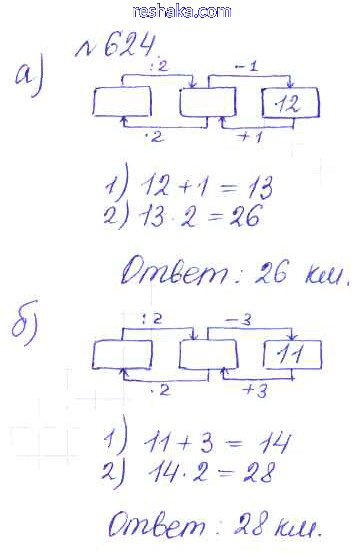 reshaka.com
№ 624.
а)
:2 -1
12
·2 +1
1) 12 + 1 = 13
2) 13 · 2 = 26
Ответ: 26 км.
б)
:2 -3
11
·2 +3
1) 11 + 3 = 14
2) 14 · 2 = 28
Ответ: 28 км.